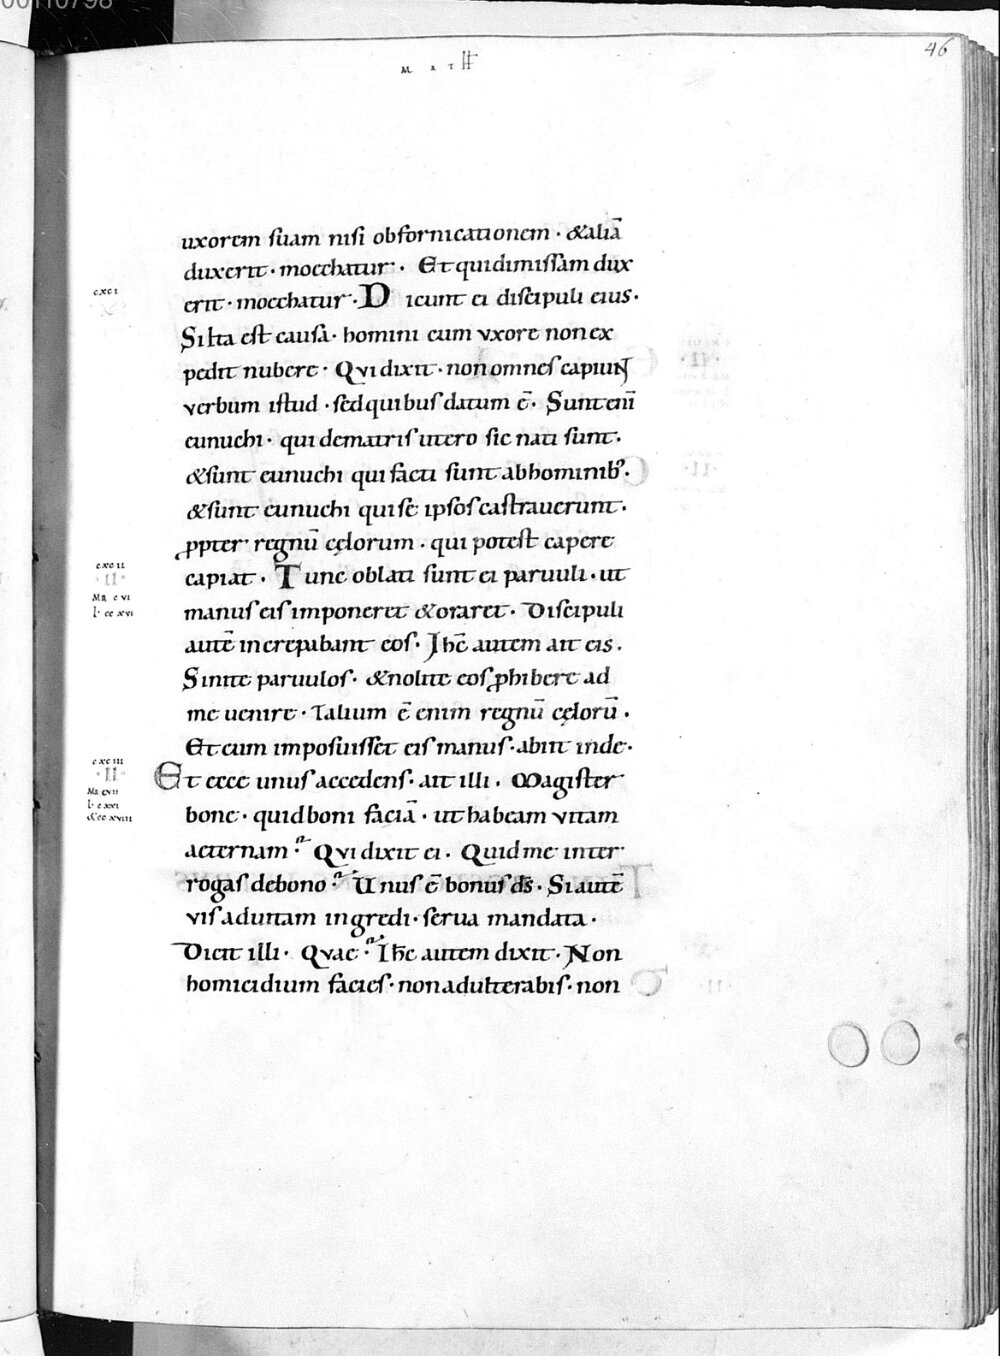 00110798
46
MATH
uxorem suam nisi obfornicationem · &aliā
duxerit · moechatur · Et quidimissam dux
cxci
erit · moechatur · Dicunt ei discipuli eius ·
Si ita est causa · homini cum vxore non ex
pedit nubere · Qvi dixit · non omnes capiuN
verbum istud · sed quibus datum ē · Sunt eni
eunuchi · qui dematris utero sic nati sunt ·
&sunt eunuchi qui facti sunt abhominib; ·
&sunt eunuchi qui se ipsos castrauerunt ·
ꝓpter regnū cęlorum · qui potest capere
cxcii
·II·
capiat · Tunc oblati sunt ei paruuli · ut
Ma c vi
L cc xvi
manus eis imponeret &oraret · Discipuli
autē increpabant eos · Ihc̄ autem ait eis ·
Sinite paruulos · &nolite eos ꝓhibere ad
me uenire · Talium ē enim regnū cęlorū ·
Et cum imposuisset eis manus · abiit inde ·
cxciii
·II·
Et ecce unus accedens · ait illi · Magister
Ma cvii
L c xxi
&cc xviii
bone · quid boni faciā · ut habeam vitam
aeternam? Qvi dixit ei · Quid me inter
rogas debono? Unus ē bonus ds̄ · Si autē
vis aduitam ingredi · serua mandata ·
Dicit illi · Qvae? Ihc̄ autem dixit · Non
homicidium facies · non adulterabis · non